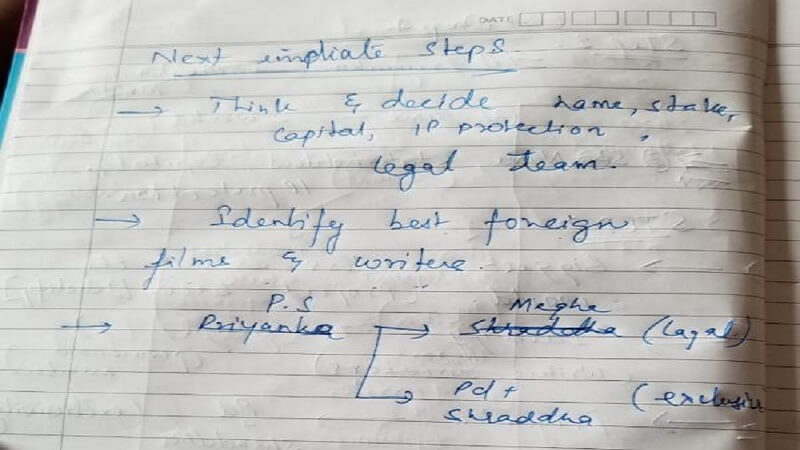 DATE
Next impliate steps.
→ Think & decide name, stake,
capital, IP protection,
legal team.
→ Identify best foreign
films & writers.
P.S Megha
→ Priyanka → Shraddha (Lagal)
→ Pd + (exclusive
Shraddha